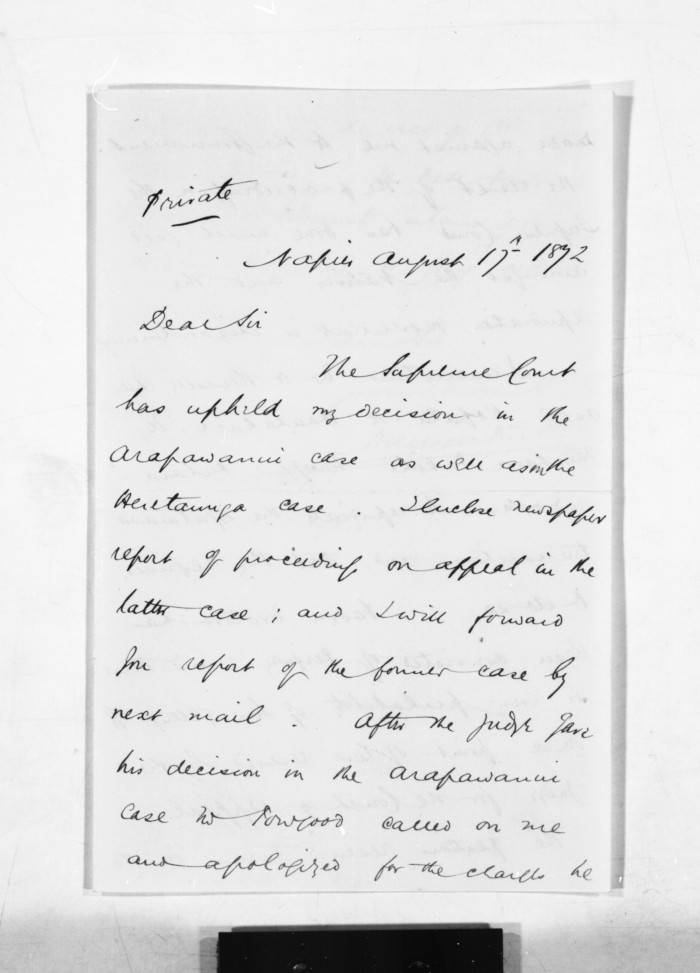 Private
Napier August 17th 1872
Dear Sir
The Supreme Court
has upheld my decision in the
Arapawanui case as well as in the
Heretaunga case. I enclose newspaper
report of proceedings on appeal in the
latter case; and I will forward
you report of the former case by
next mail. After the Judge gave
his decision in the Arapawanui
case Mr Towgood called on me
and apologized for the charges he